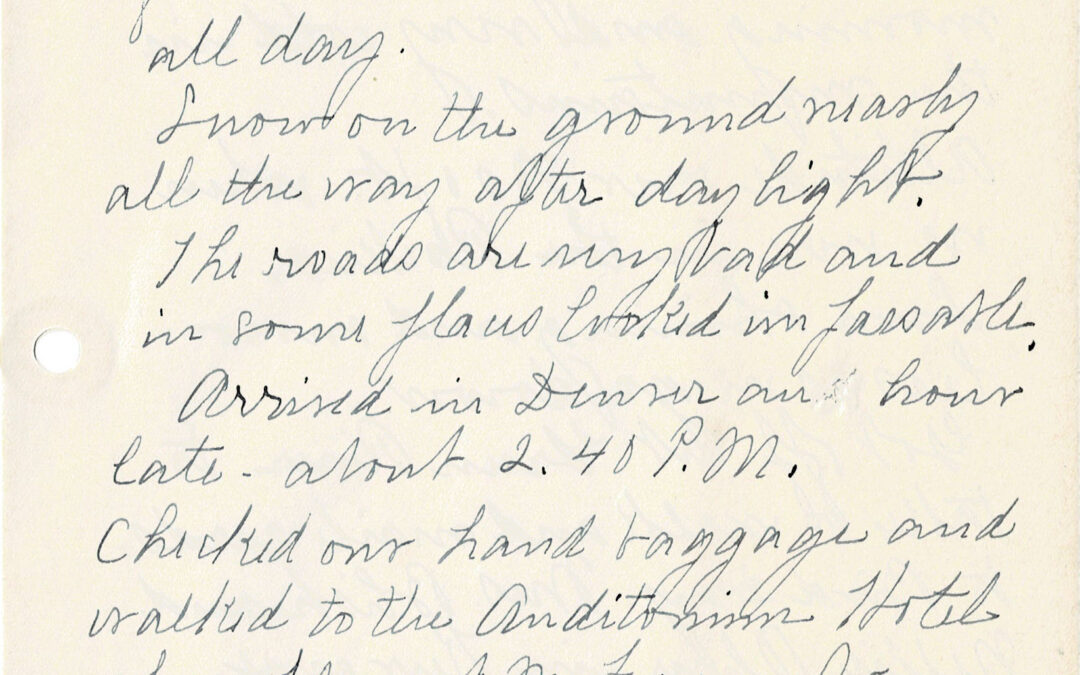 all day.
Snow on the ground nearly
all the way after daylight.
The roads are very bad and
in some places looked impassable.
Arrived in Denver an hour
late - about 2.40 P.M.
Checked our hand baggage and
walked to the Auditorium Hotel